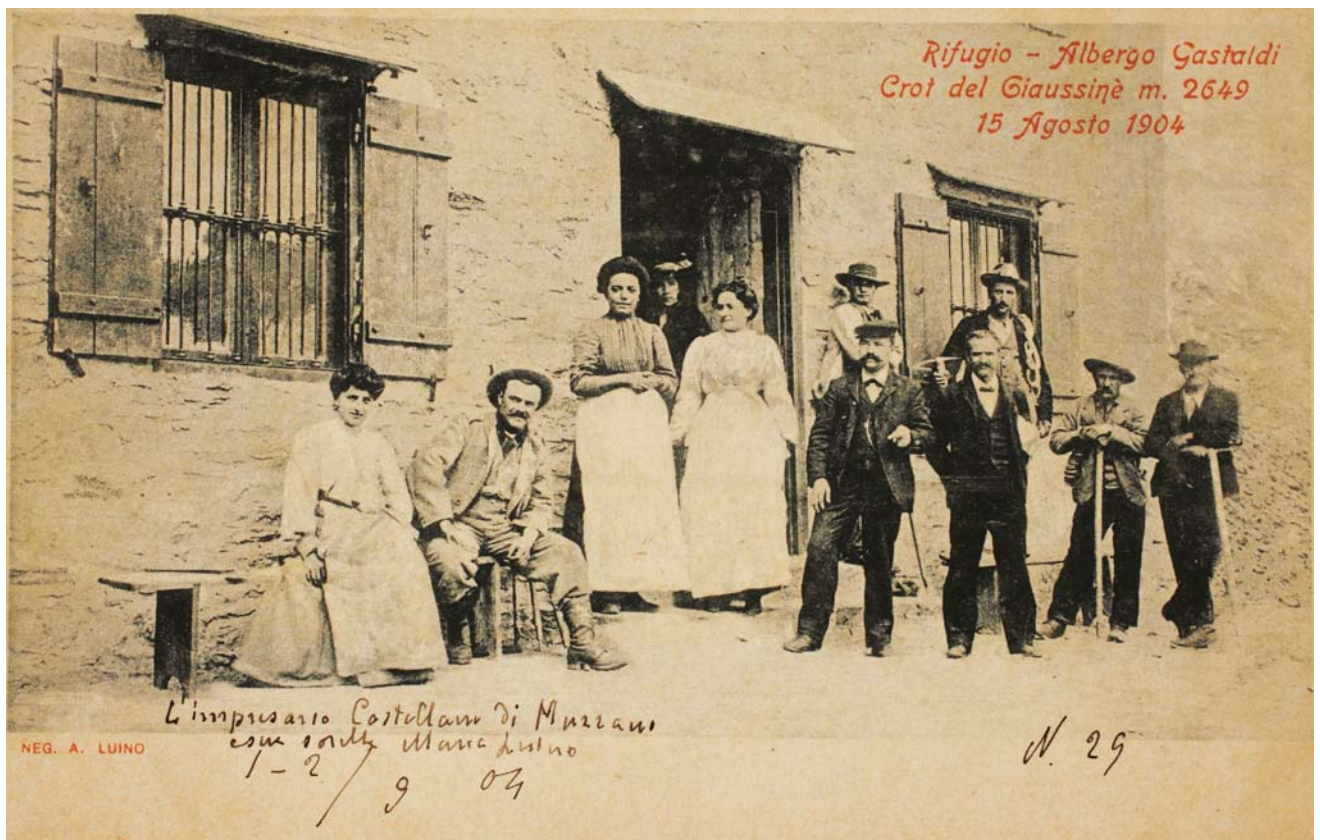 Rifugio - Albergo Gastaldi
Crot del Giaussinè m. 2649
15 Agosto 1904
L'impresario Castellano di Muzzano
sorella Maria
NEG. A. LUINO
1-2/9 04
N. 29